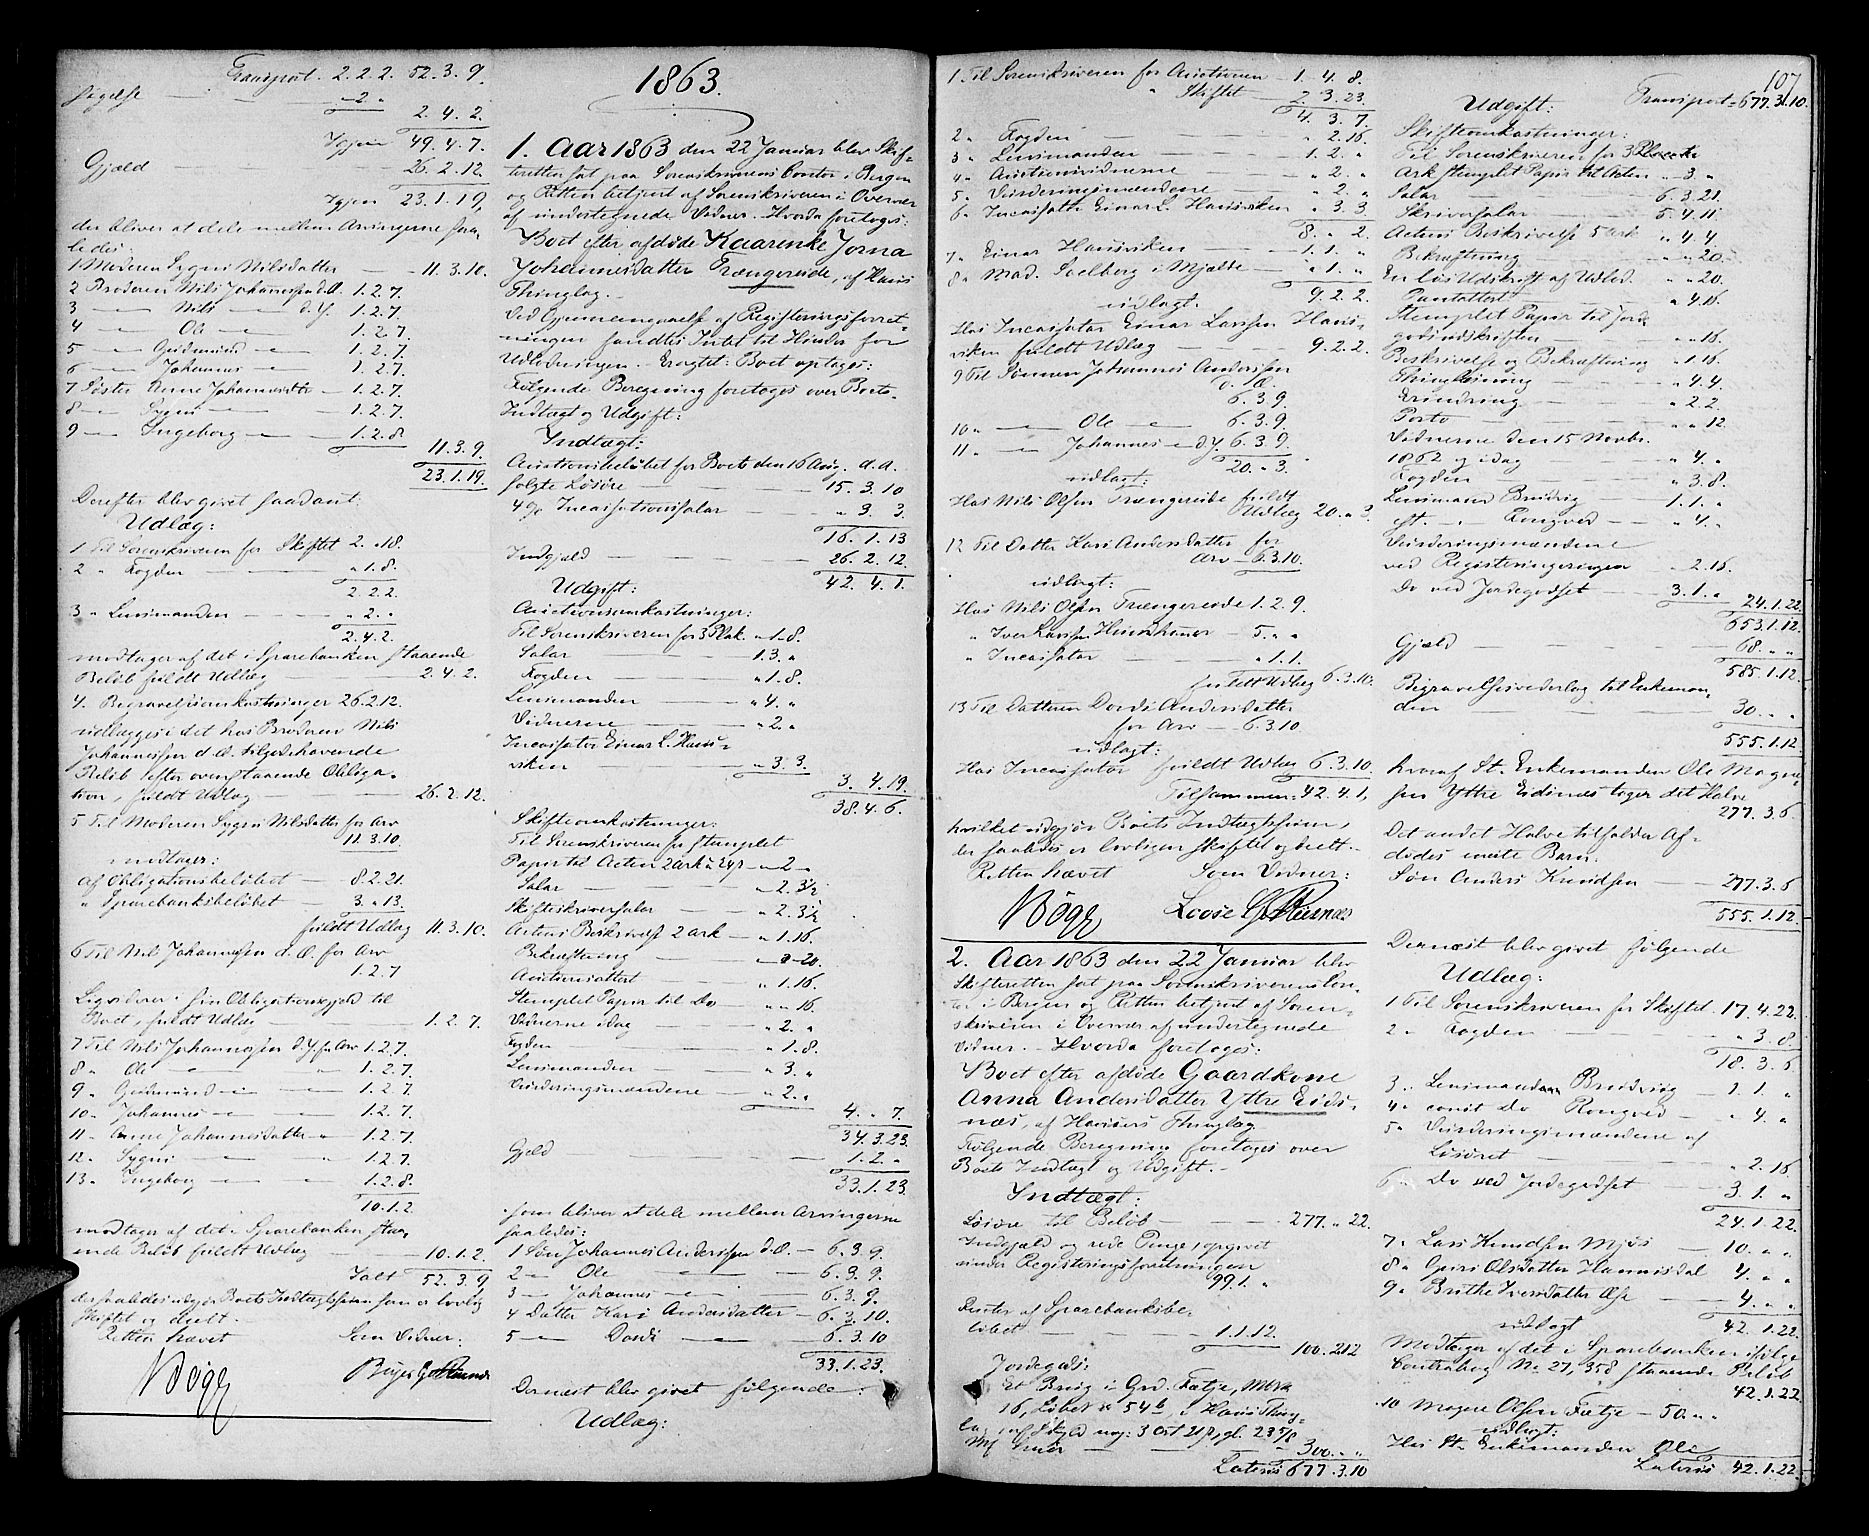 Transport. 2.2.2. 52.3.9.
følgelse — „ 2 „
2.4.2.
Igjen 49.4.7.
Gjæld — 26.2.12.
Igjen 23.1.19,
der bliver at dele mellem Arvingerne saa-
ledes:
1 Moderen Sygni Nilsdatter — 11.3.10.
2 Broderen Nils Johannessen d.Æ. 1.2.7.
3 — Nils — d.Y. 1.2.7.
4 — Ole — 1.2.7.
5 — Gudmund — 1.2.7.
6 — Johannes — 1.2.7.
7 Søster Anne Johannesdtr — 1.2.7.
8 — Sygni — 1.2.7.
9 — Ingeborg — 1.2.8.
11.3.9.
23.1.19.
Derefter blev givet saadant
Udlæg:
1 Til Sorenskriveren for Skiftet 2. „ 18.
2 „ Fogden — „ 1.8.
2.2.2.
3 „ Lensmanden — „ 2. „
2.4.2.
modtager af det i Sparebanken staaende
Beløb fuldt Udlæg — 2.4.2.
4. Begravelsesomkostninger 26.2.12.
udlægges i det hos Broderen Nils
Johannessen d.Æ. tilgodehavende
Beløb efter ovenstaaende Obliga-
tion, fuldt Udlæg — 26.2.12.
5 Til Moderen Sygni Nilsdatter for Arv
11.3.10.
modtager:
af Obligationsbeløbet — 8.2.21.
„ Sparebanksbeløbet — 3. „ 13.
fuldt Udlæg 11.3.10.
6 Til Nils Johannessen d.Æ. for Arv
1.2.7
Liqviderer i sin Obligationsgjæld til
Boet, fuldt Udlæg — 1.2.7.
7 Til Nils Johannessen d.Y. for Arv 1.2.7.
8 „ Ole — „ 1.2.7.
9 „ Gudmund — 1.2.7.
10 „ Johannes — 1.2.7.
11 „ Anne Johannesdatter „ 1.2.7.
12 „ Sygni — „ 1.2.7.
13 „ Ingeborg — 1.2.8.
10.1.2.
modtager af det i Sparebanken staa-
ende Beløb fuldt Udlæg — 10.1.2.
Ialt 52.3.9
der saaledes udgjør Boets Indtægtssum som er lovlig
skiftet og delt.
Retten hævet Som Vidner:
Bøgg
1863.
1. Aar 1863 den 22 Januar blev Skif-
teretten sat paa Sorenskriverens Contor i Bergen
og Retten betjent af Sorenskriveren i Overvær
af undertegnede Vidner. Hvorda foretoges:
Boet efter afdøde Kaarenke Jorna
Johannesdatter Trængereide, af Haus
Thinglag. —
Ved Gjennemgaaelse af Registeringsforret-
ningen fandtes Intet til Hinder for
Udlodningen. Eragtet: Boet optages:
Følgende Beregning foretoges over Boets
Indtægt og Udgift:
Indtægt:
Auctionsbeløbet for Boets den 16 Aug. d.A.
solgte Løsøre — 15.3.10
4 pc Incassationssalar — „ 3 3.
16.1.13
Indgjæld — 26.2.12.
42.4.1.
Udgift:
Auctionsomkostninger:
Til Sorenskriveren for 3 Plak. „ 1.8.
Salar — 1.3. „
Fogden — „ 1.8.
Lensmanden — „ 4. „
Vidnerne — „ 2. „
Incassator Einar L. Haus-
viken — „ 3.3.
3.4.19.
38.4.6.
Skifteomkostninger:
Til Sorenskriveren for stemplet
Papir til Acten 2 ark à 24 s „ 2 „
Salar — „ 2.3½
Skifteskriversalar — „ 2.3½
Actens Beskrivelse 2 ark — „ 1.16.
Bekræftning — „ „ 20.
Auctionsattest — „ 1.16.
Stemplet Papir til Do „ „ 16.
Vidnerne idag — „ 2. „
Fogden — „ 1.8.
Lensmanden — „ 3. „
Vurderingsmændene — „ 2. „
4. „ 7.
34.3.23.
Gjæld — 1.2. „
33.1.23.
som bliver at dele mellem Arvingerne
saaledes:
1 Søn Johannes Anderssen d.Æ. — 6.3.9.
2 — Ole — 6.3.9.
3 — Johannes — 6.3.9.
4 Datter Kari Andersdatter — 6.3.10.
5 — Dordi — 6.3.10
33.1.23.
Dernæst blev givet følgende:
Udlæg:
107
1. Til Sorenskriveren for Auctionen — 1.4.8.
„ Skiftet — 2.3.23.
4.3.7.
2 „ Fogden — „ 2.16.
3 „ Lensmanden — 1.2. „
4 „ Auctionsvidnerne — „ 2. „
5 „ Vurderingsmændene — „ 2. „
6 „ Incassator Einar L. Hausviken „ 3.3
8. „ 2.
7 „ Einar Hausviken — 1.1. „
8 „ Mad. Soelberg i Mjelde — „ 1. „
9.2.2.
udlagt.
Hos Incassator Einar Larssen Haus-
viken fuldt Udlæg — 9.2.2.
9 Til Sønnen Johannes Anderssen
d.Æ.
6.3.9.
10 „ — Ole — 6.3.9.
11 „ — Johannes — d.Y. 6.3.9.
20. „ 3.
udlagt:
Hos Nils Olsen Trængereide fuldt
Udlæg 20. „ 3.
12 Til Datter Kari Andersdatter for
Arv — 6.3.10.
udlagt:
Hos Nils Olsen Trængereide 1.2.9.
„ Iver Larssen — 5. „ „
„ Incassator — „ 1.1.
fuldt Udlæg 6.3.10.
13 Til Datteren Dordi Andersdatter
for Arv — 6.3.10
udlagt:
Hos Incassator fuldt Udlæg 6.3.10.
Tilsammen: 42.4.1,
hvilket udgjør Boets Indtægtssum,
der saaledes er lovligen skiftet og delt. —
Retten hævet Som Vidner:
Bøgg
2. Aar 1863 den 22 Januar blev
Skifteretten sat paa Sorenskriverens Con-
tor i Bergen og Retten betjent af Soren-
skriveren i Overvær af undertegnede
Vidner. — Hvorda foretoges:
Boet efter afdøde Gaardkone
Anna Andersdatter Yttre Eids-
næs, af Hausers Thinglag
Følgende Beregning foretoges over
Boets Indtægt og Udgift. —
Indtægt:
Løsøre til Beløb — 277. „ 22.
Indgjæld og rede Penge, opgivet
under Registeringsforretningen
99.1. „
Renter af Sparebanksbe-
løbet — 1.1.12.
100.2.12
Jordegods:
Et Brug i Grd. Fætje,
16, Løbe No 54b, i Haus Thing-
lag, af Skyld ny: 3 Ort 21 s, gl. 23 5/8
Mk Smør — 300. „ „
Lateris 677.3.10
Transport 677.3.10.
Udgift:
Skifteomkostninger:
Til Sorenskriveren for 3
Ark stemplet Papir til Acten „ 3 „
Salar — 6.3.21.
Skriversalar — 5.4.11.
Actens Beskrivelse 5 ark „ 4.4.
Bekræftning „ „ 20.
En løs Udskrift af Udlod. „ „ 20.
Panteattest — „ 4.16.
Stemplet Papir til Jorde
godsudskriften — „ „ 16.
Beskrivelse og Bekræftning „ 1.16.
Thinglæsning — „ 4.4.
Erindring — „ 2.2.
Porto — „ „ 12
Vidnerne den 15 Novbr.
1862 og idag — „ 4. „
Fogden — „ 3.8.
Lensmand Brudvig — 1.1. „
cst. „ Rongved — „ 4. „
Vurderingsmændene
ved Registeringen — „ 2.16.
Do ved Jordegodset — 3.1. „
24.1.22.
653.1.12.
Gjæld — 68. „ „
585.1.12.
Begravelsesvederlag til Enkeman-
den — 30. „ „
555.1.12.
hvoraf St. Enkemanden Ole Magne-
sen Yttre Eidsnæs tager det Halve
277.3.6.
Det andet Halve tilfalder Af-
dødes eneste Barn:
Søn Anders Knudsen — 277.3.6
555.1.12.
Dernæst blev givet følgende
Udlæg:
1 Til Sorenskriveren for Skiftet. 17.4.22.
2 „ Fogden — „ 3.8.
18.3.6.
3 „ Lensmanden Brudvig — 1.1. „
4 „ const Do Rongved — „ 4. „
5 „ Vurderingsmændene af
Løsøret — „ 2.16
6 „ Do ved Jordegodset — 3.1. „
24.1.22.
7 „ Lars Knudsen Mjøs — 10. „ „
8 „ Guri Olsdatter Hannisdal 4. „ „
9 „ Brithe Iversdatter Øse — 4. „ „
42.1.22.
udlagt
Modtager af det i Sparebanken ifølge
Contrabog No 27,358 staaende Beløb
42.1.22.
10 Mogens Olsen Fætje — 50. „ „
udlagt:
Hos St. Enkemanden Ole
Lateris 42.1.22.